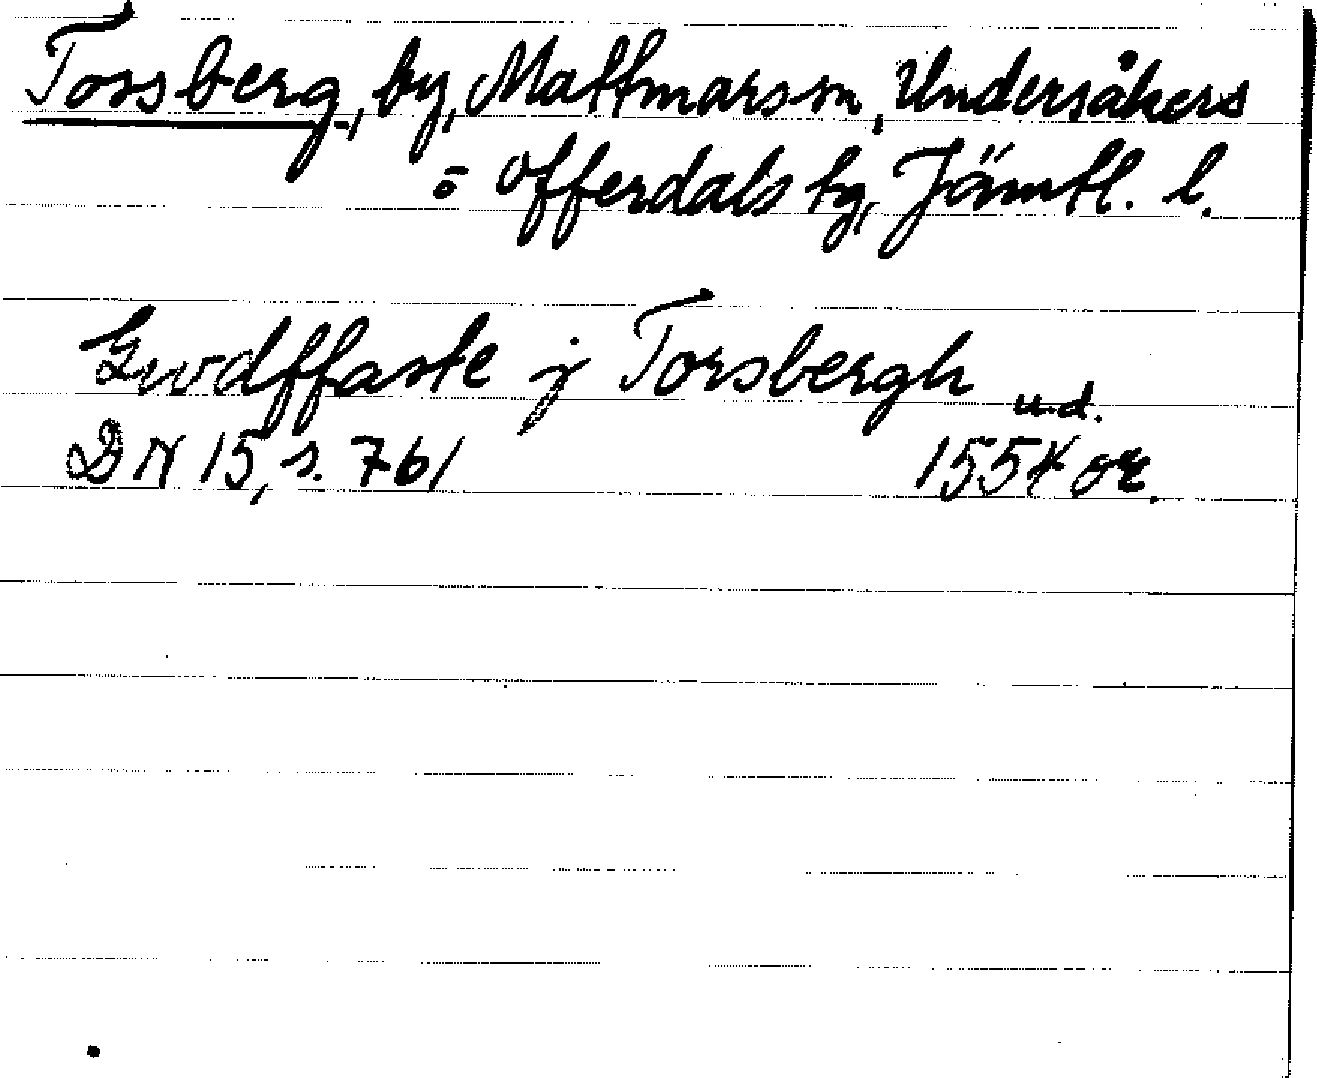 Tossberg, by, Mattmars sn, Undersåkers
o Offerdals tg, Jämtl. l.
Gwdffaste j Torsbergh
u.d.
DN 15, s. 761 1554 or.